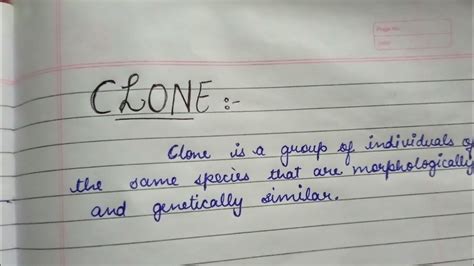 Page No.
Date
CLONE :-
Clone is a group of individuals of
the same species that are morphologically
and genetically similar.